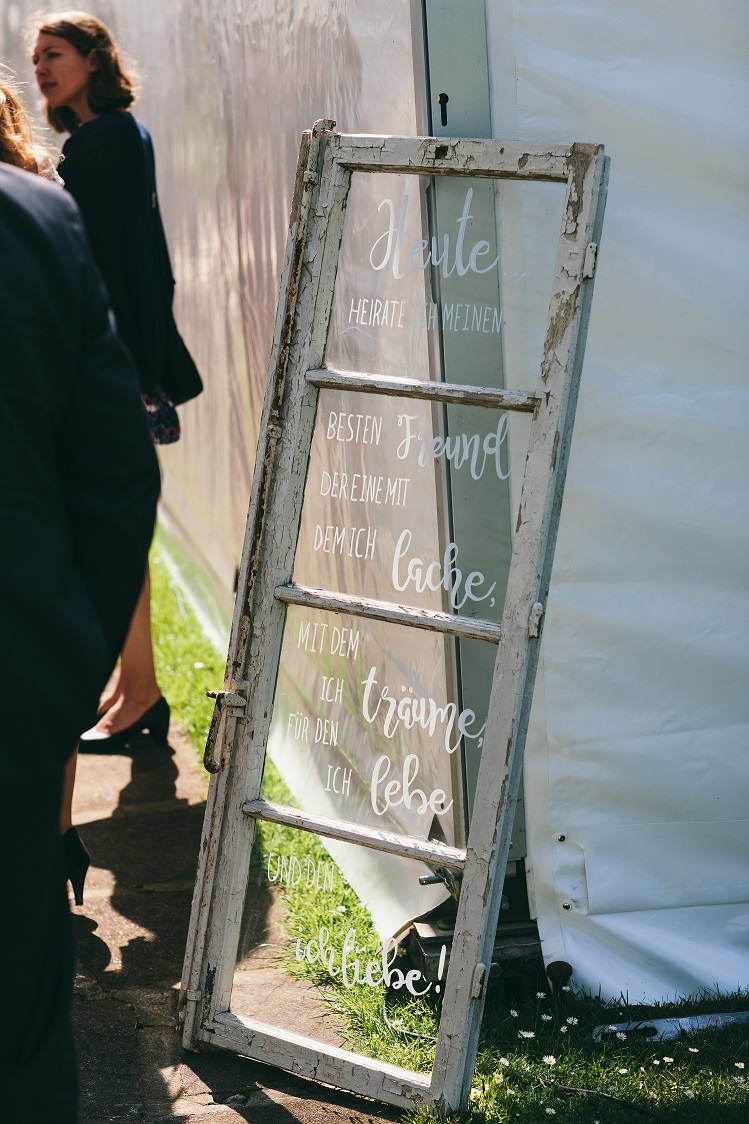 Heute...
HEIRATE ICH MEINEN
BESTEN Freund
DER EINE MIT
DEM ICH lache,
MIT DEM
ICH träume,
FÜR DEN
ICH lebe
UND DEN
ich liebe!